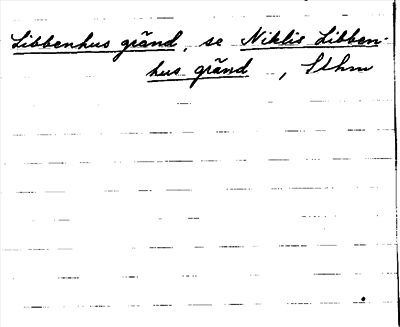 Libbenhus gränd, se Niklis Libben-
hus gränd, Sthm